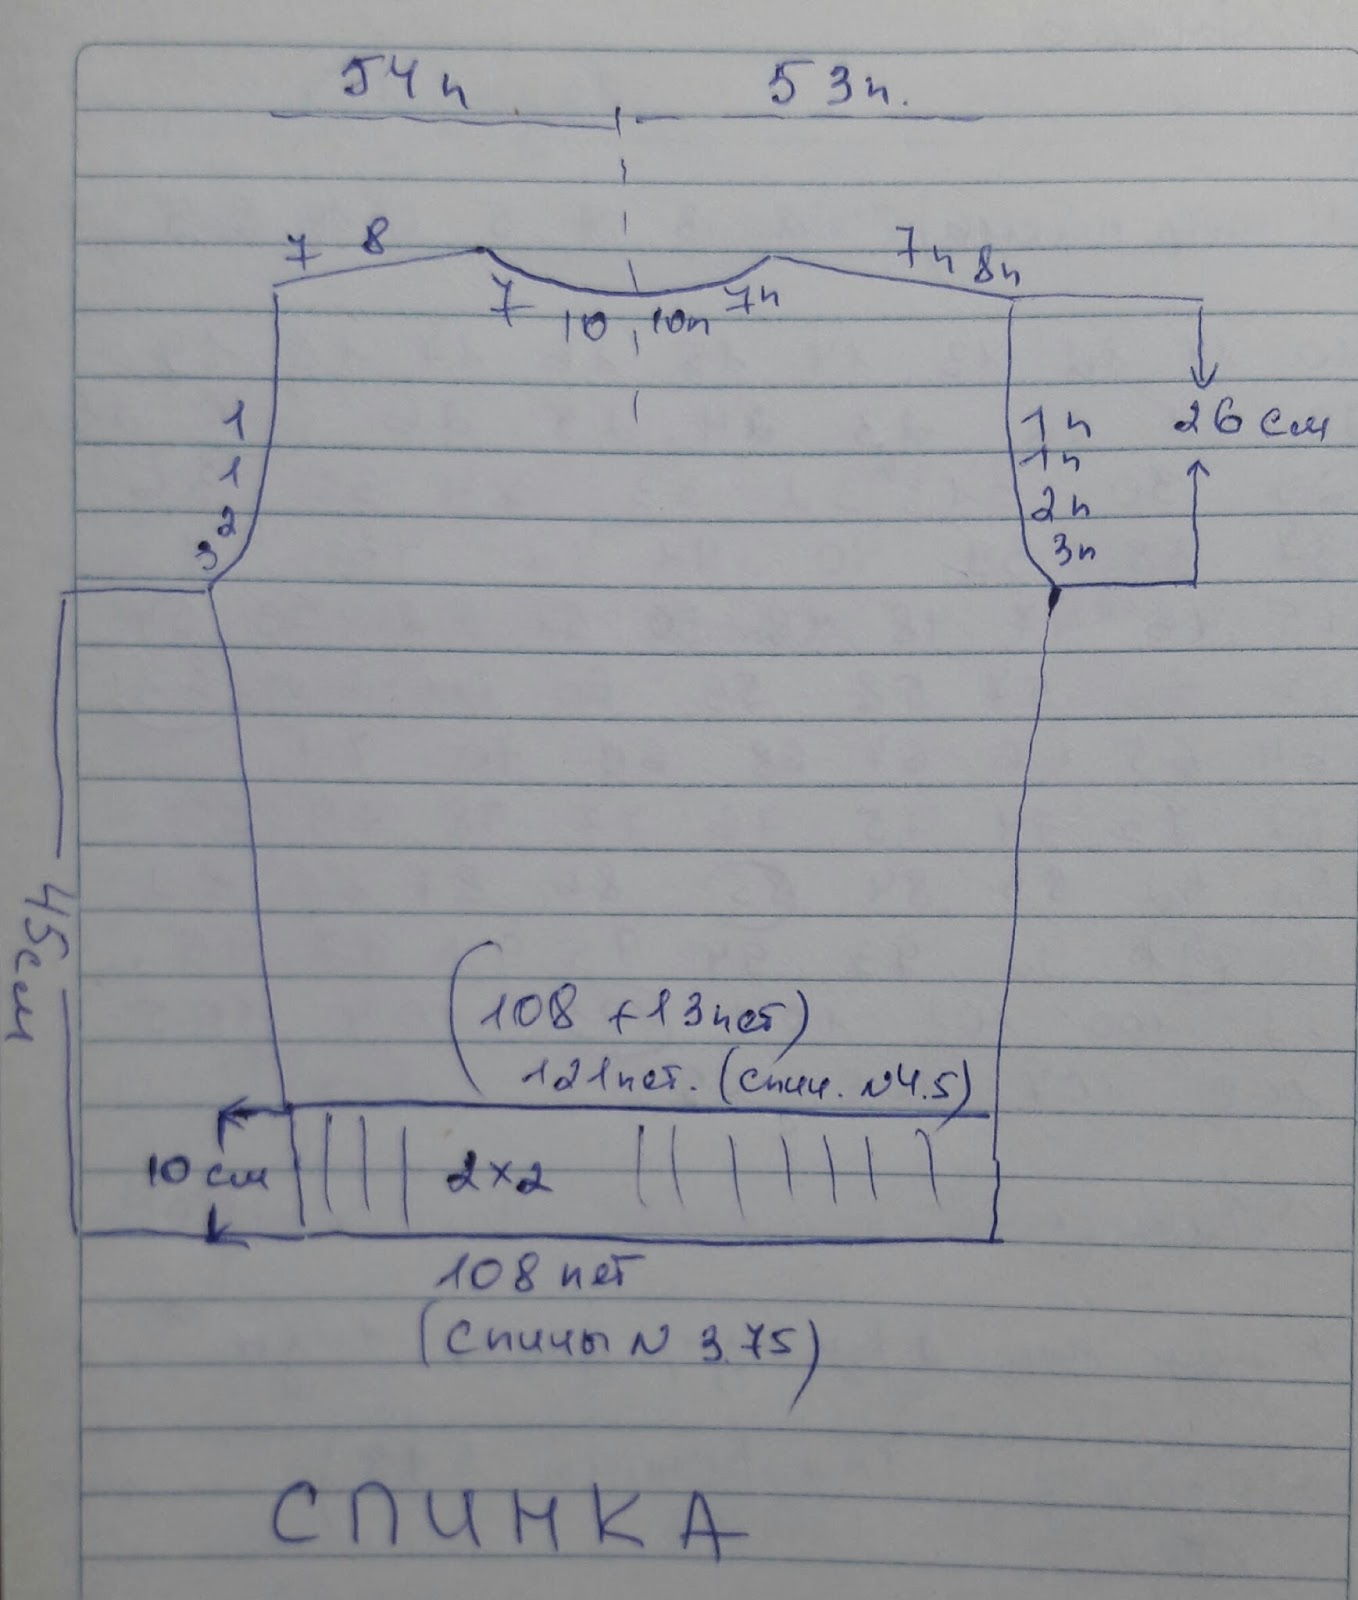 54п 53п.
7 8 7п 8п
7 10 10п 7п
1 1п 26 см
1 1п
2 2п
3 3п
45см
(108 +13пет)
121пет. (спиц. №4.5)
10 см 2×2
108 пет
(спицы № 3.75)
СПИНКА